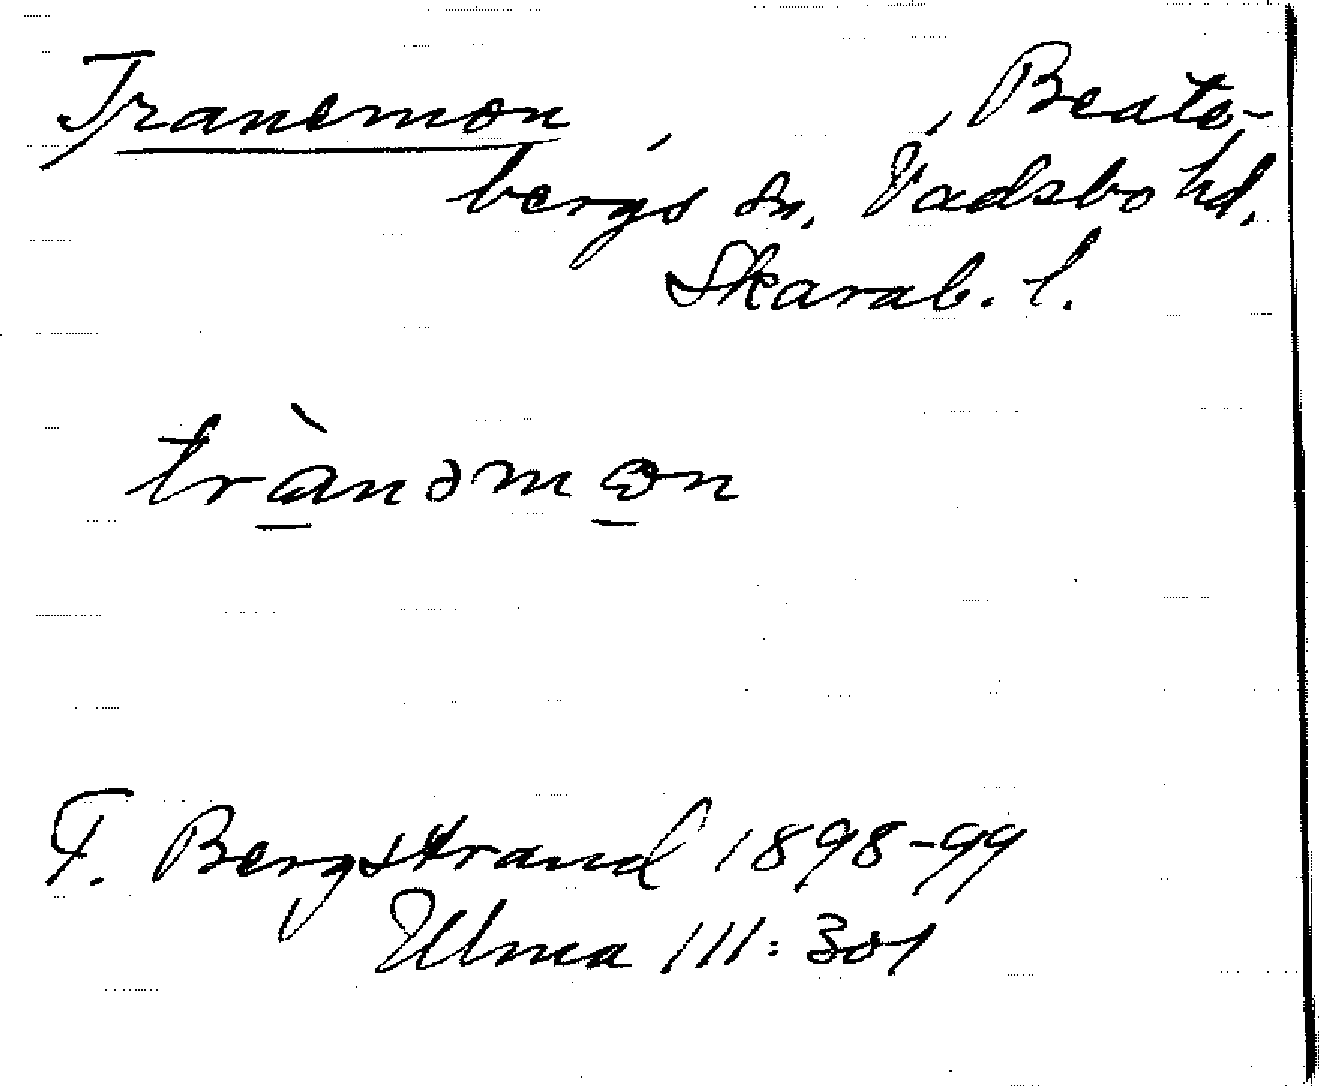 Tranemon, , Beate-
bergs sn. Vadsbo hd.
Skarab. l.
trànəmɷn
T. Bergstrand 1898-99
Ulma 111:301